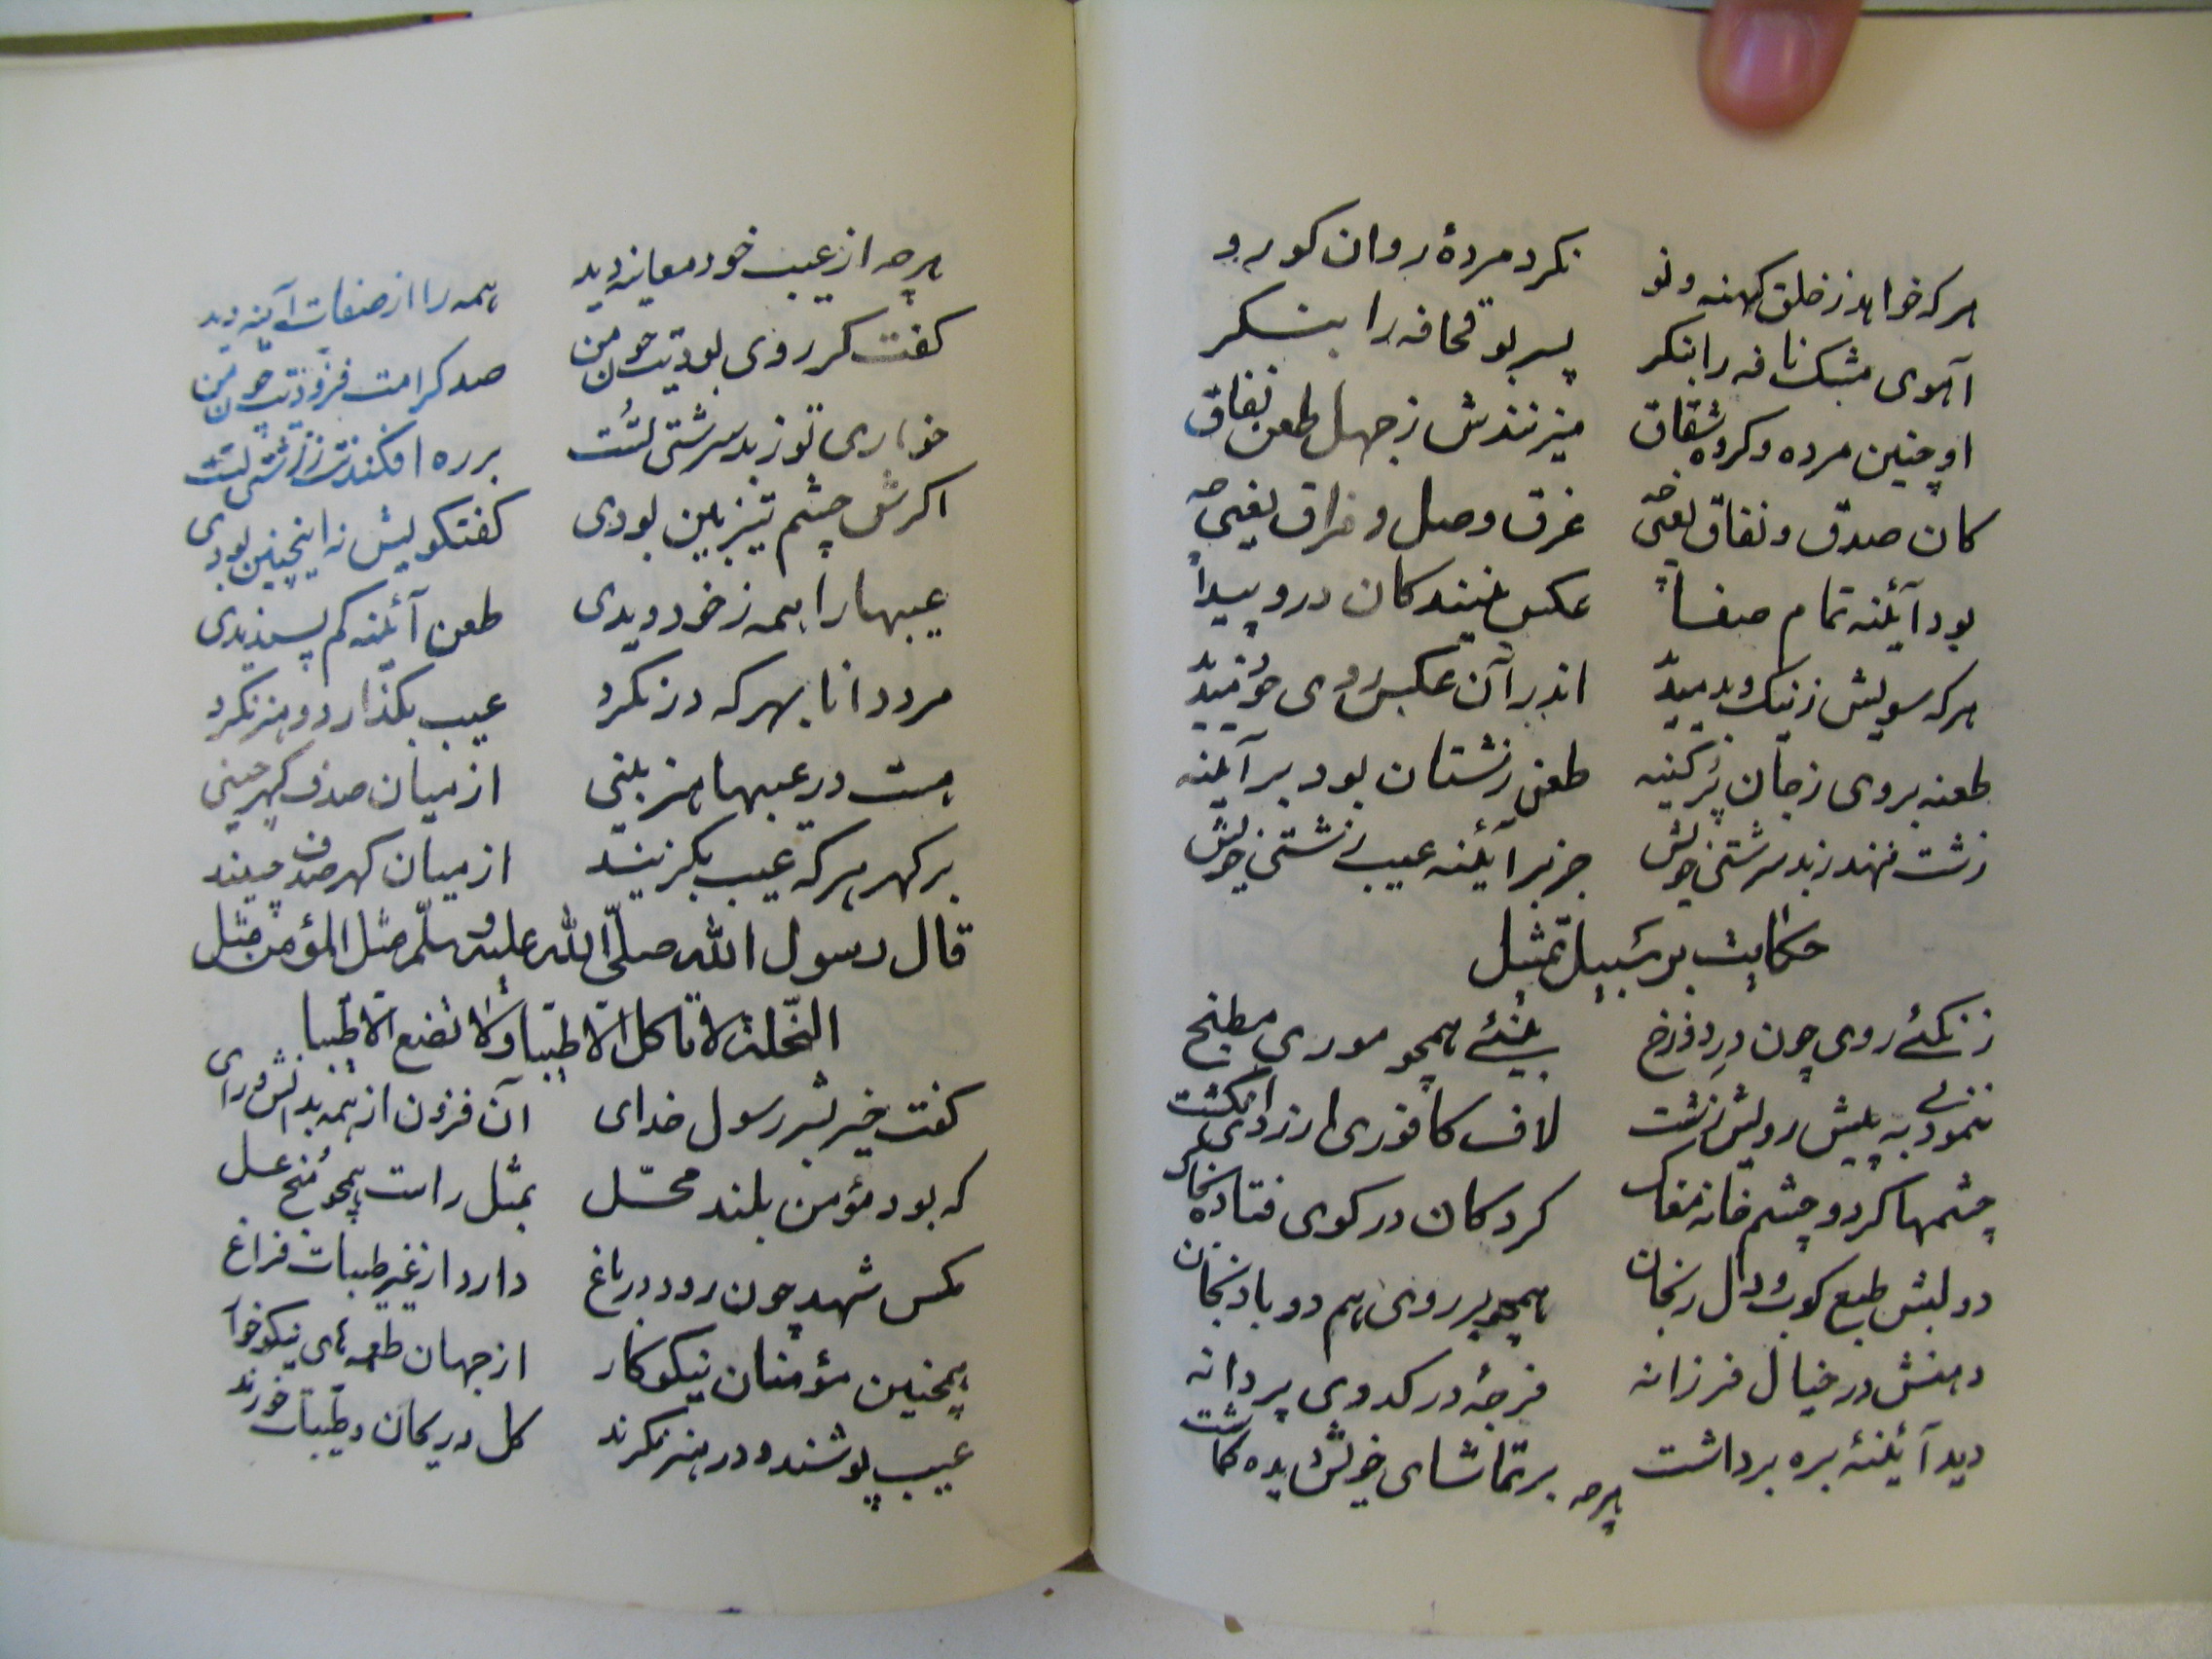 هر که خواهد ز خلق کهنه و نو نکرد مردهٔ روان کو رو
آهوی مشک نافه را بنکر پسر بو قحافه را بنکر
او چنین مرده و کروه شقاق میزنندش ز جهل طعن نفاق
کان صدق و نفاق یعنی چه غرق وصل و فراق یعنی چه
بود آئنه تمام صفا عکس بینندکان درو پیدا
هر که سویش ز نیک و بد میدید اندر آن عکس روی خود میدید
طعنه بروی ز جان پر کینه طعن زشتان بود بر آینه
زشت ننهد ز بد سرشتی خویش جز بر آیئنه عیب زشتی خویش
حکایت بر سبیل تمثیل
زنکئی روی چون در دوزخ بینئی همچو موری مطبخ
ننمودی به پیش رویش زشت لاف کافوری ار زدی انکشت
چشمها کرد و چشم خانه مغاک کردکان در کوی فتاده بخاک
دو لبش طبع کوب و دل رنجان همچو بر روی هم دو بادنجان
دهنش در خیال فرزانه فرجهٔ در کدوی پر دانه
دید آیئنهٔ بره برداشت بر تماشای خویش دیده کماشت
هر چه
هر چه از عیب خود معاینه دید همه را از صفات آینه دید
کفت کر روی بودیت چون من صد کرامت فزودیت چون من
خواری تو ز بد سرشتی تست بر ره افکندنت ز زشتی تست
اکرش چشم تیز بین بودی کفتکویش نه اینچنین بودی
عیبها را همه ز خود دیدی طعن آئنه کم پسندیدی
مرد دانا بهر که در نکرد عیب بکذارد و هنر نکرد
هست در عیبها هنر بینی از میان صدف کهر چینی
بر کهر هر که عیب بکزیند از میان کهر صدف چیند
قال رسول الله صلّی الله علیه و سلّم مثل المؤمن مثل
النّحلة لا تاکل الا طیّبا و لا تضع الا طیّبا
کفت خیر بشر رسول خدای آن فزون از همه بدانش و رای
که بود مؤمن بلند محل بمثل راست همچو منج عسل
مکس شهد چون رود در باغ دارد از غیر طیبات فراغ
همچنین مؤمنان نیکوکار از جهان طعمه های نیکو خوار
عیب پوشند و در هنر نکرند کل و ریحان و طیّبات خورند